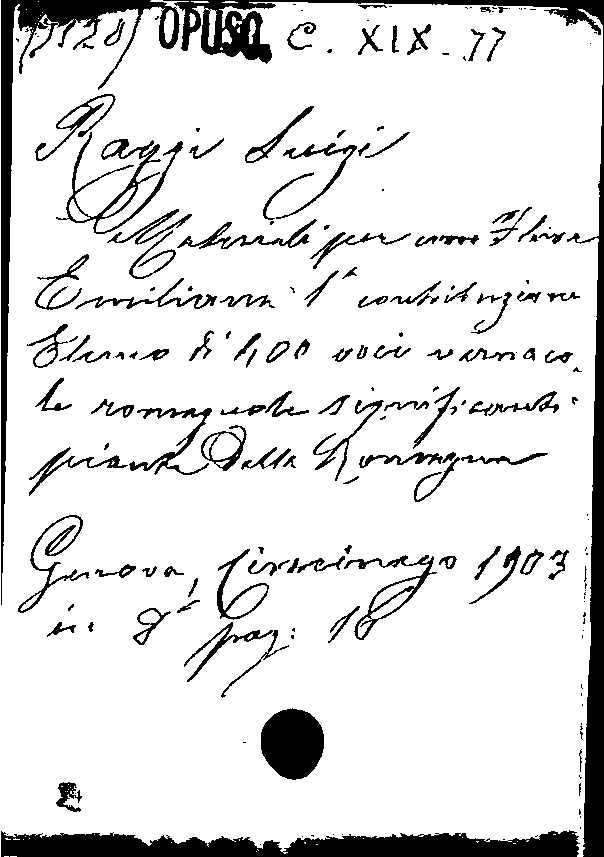 (7128) OPUSC. C. XIX. 77
Raggi Luigi
Materiali per una Flora
Emiliana 1ª contribuzione
Elenco di 400 voci vernaco-
le romagnole significanti
piante della Romagna
Genova, Ciminago 1903
in 8° pag: 18